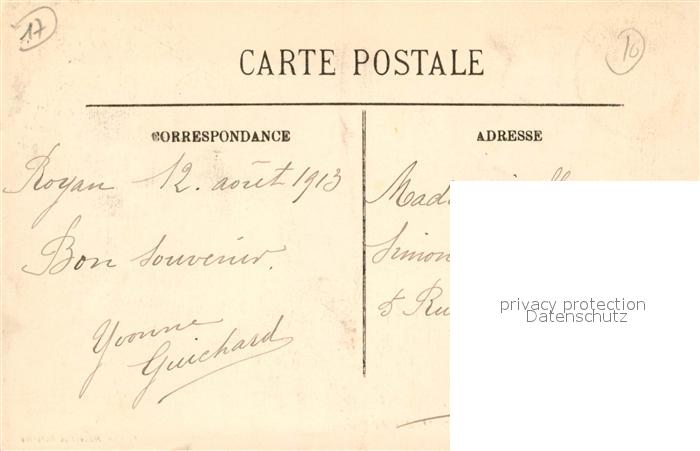 17
10
CARTE POSTALE
CORRESPONDANCE
ADRESSE
Royan 12. août 1913
Bon souvenir.
Yvonne
Guichard
Simon
5 Ru
privacy protection
Datenschutz